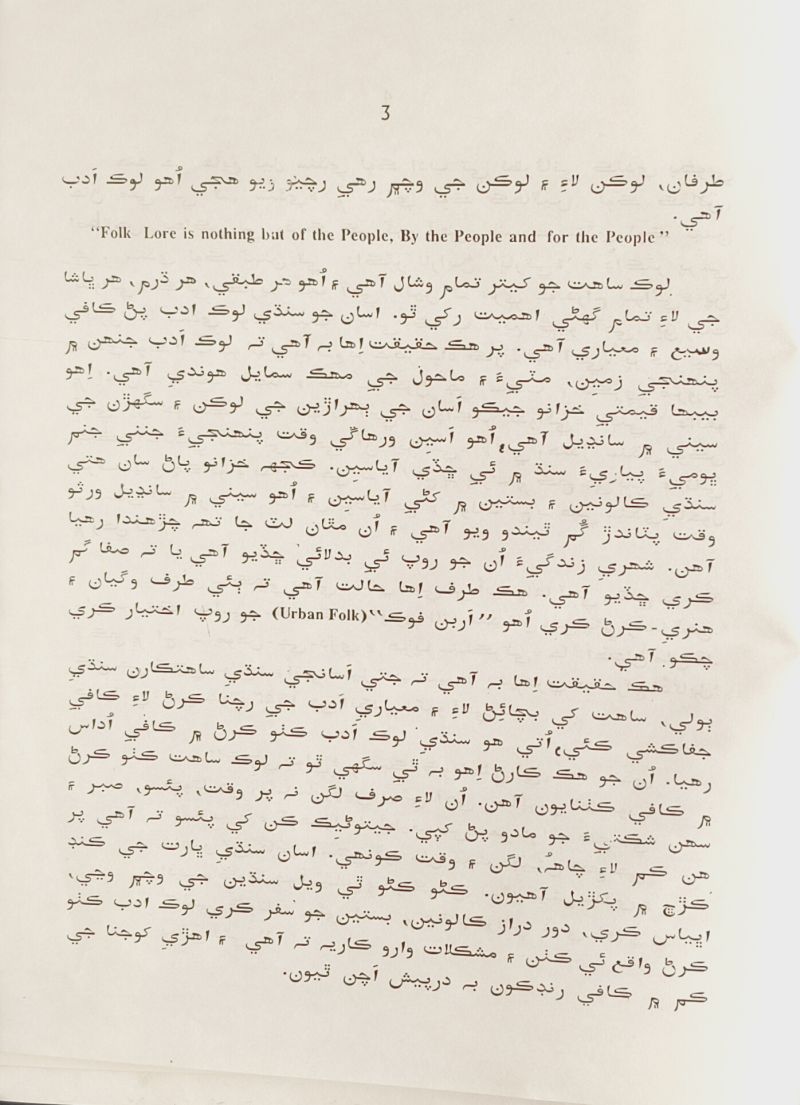 3
طرفان، لوڪن لاءِ ۽ لوڪن جي وچ۾ رهي رچيو ويو هجي اُهو لوڪ اَدب
آهي.
“Folk Lore is nothing bat of the People, By the People and for the People”
لوڪ ساهت جو کيتر تمام وشال آهي ۽ اُهو هر طبقي، هر ڌرم، هر ڀاشا
جي لاءِ تمام گهڻي اهميت رکي ٿو. اسان جو سنڌي لوڪ ادب پڻ ڪافي
وسيع ۽ معياري آهي. پر هڪ حقيقت اِها به آهي ته لوڪ اَدب جنهن ۾
پنهنجي زمين، مٽيءَ ۽ ماحول جي مهڪ سمايل هوندي آهي. اِهو
بيبها قيمتي خزانو جيڪو اَسان جي ٻهراڙين جي لوڪن ۽ سگهڙن جي
سيني ۾ سانڍيل آهي، اُهو اَسين ورهاڱي وقت پنهنجيءَ جنني جنم
ڀوميءَ پياريءَ سنڌ ۾ ئي ڇڏي آياسين. ڪجهه خزانو پاڻ سان هتي
سنڌي ڪالونين ۽ بستين ۾ کڻي آياسين ۽ اُهو سيني ۾ سانڍيل ورثو
وقت پٽاندڙ گُم ٿيندو ويو آهي ۽ اُن مٿان لٽ جا تهه چڙهندا رهيا
آهن. شهري زندگيءَ اُن جو روپ ئي بدلائي ڇڏيو آهي يا ته صفا گم
ڪري ڇڏيو آهي. هڪ طرف اِها حالت آهي ته ٻئي طرف وگيان ۽
هنري-ڪرڻ ڪري اُهو “اَربن فوڪ” (Urban Folk) جو روپ اختيار ڪري
چڪو آهي.
هڪ حقيقت اِها به آهي ته جتي اَسانجي سنڌي ساهتڪارن سنڌي
ٻولي، ساهت کي بچائڻ لاءِ ۽ معياري اَدب جي رچنا ڪرڻ لاءِ ڪافي
جفاڪشي ڪئي، اُتي هو سنڌي لوڪ اَدب ڪٺو ڪرڻ ۾ ڪافي اُداس
رهيا. اُن جو هڪ ڪارڻ اِهو به ٿي سگهي ٿو ته لوڪ ساهت ڪٺو ڪرڻ
۾ ڪافي ڪٺنايون آهن. اُن لاءِ صرف لگن نه پر وقت، پئسو، صبر ۽
سهن شڪتيءَ جو مادو پڻ کپي. جيتوڻيڪ ڪن کي پئسو ته آهي پر
هن ڪم لاءِ چاهه، لگن ۽ وقت ڪونهي. اسان سنڌي ڀارت جي ڪنڊ
ڪڙڇ ۾ پکڙيل آهيون. ڪٿو ڪٿو ٿي ويل سنڌين جي وچ۾ وڃي،
اڀياس ڪري، دور دراز ڪالونين، بستين جو سفر ڪري لوڪ ادب ڪٺو
ڪرڻ واقع ئي ڪٺن ۽ مشڪلات وارو ڪاريه ته آهي ۽ اهڙي کوجنا جي
ڪم ۾ ڪافي رنڊڪون به درپيش اَچن ٿيون.